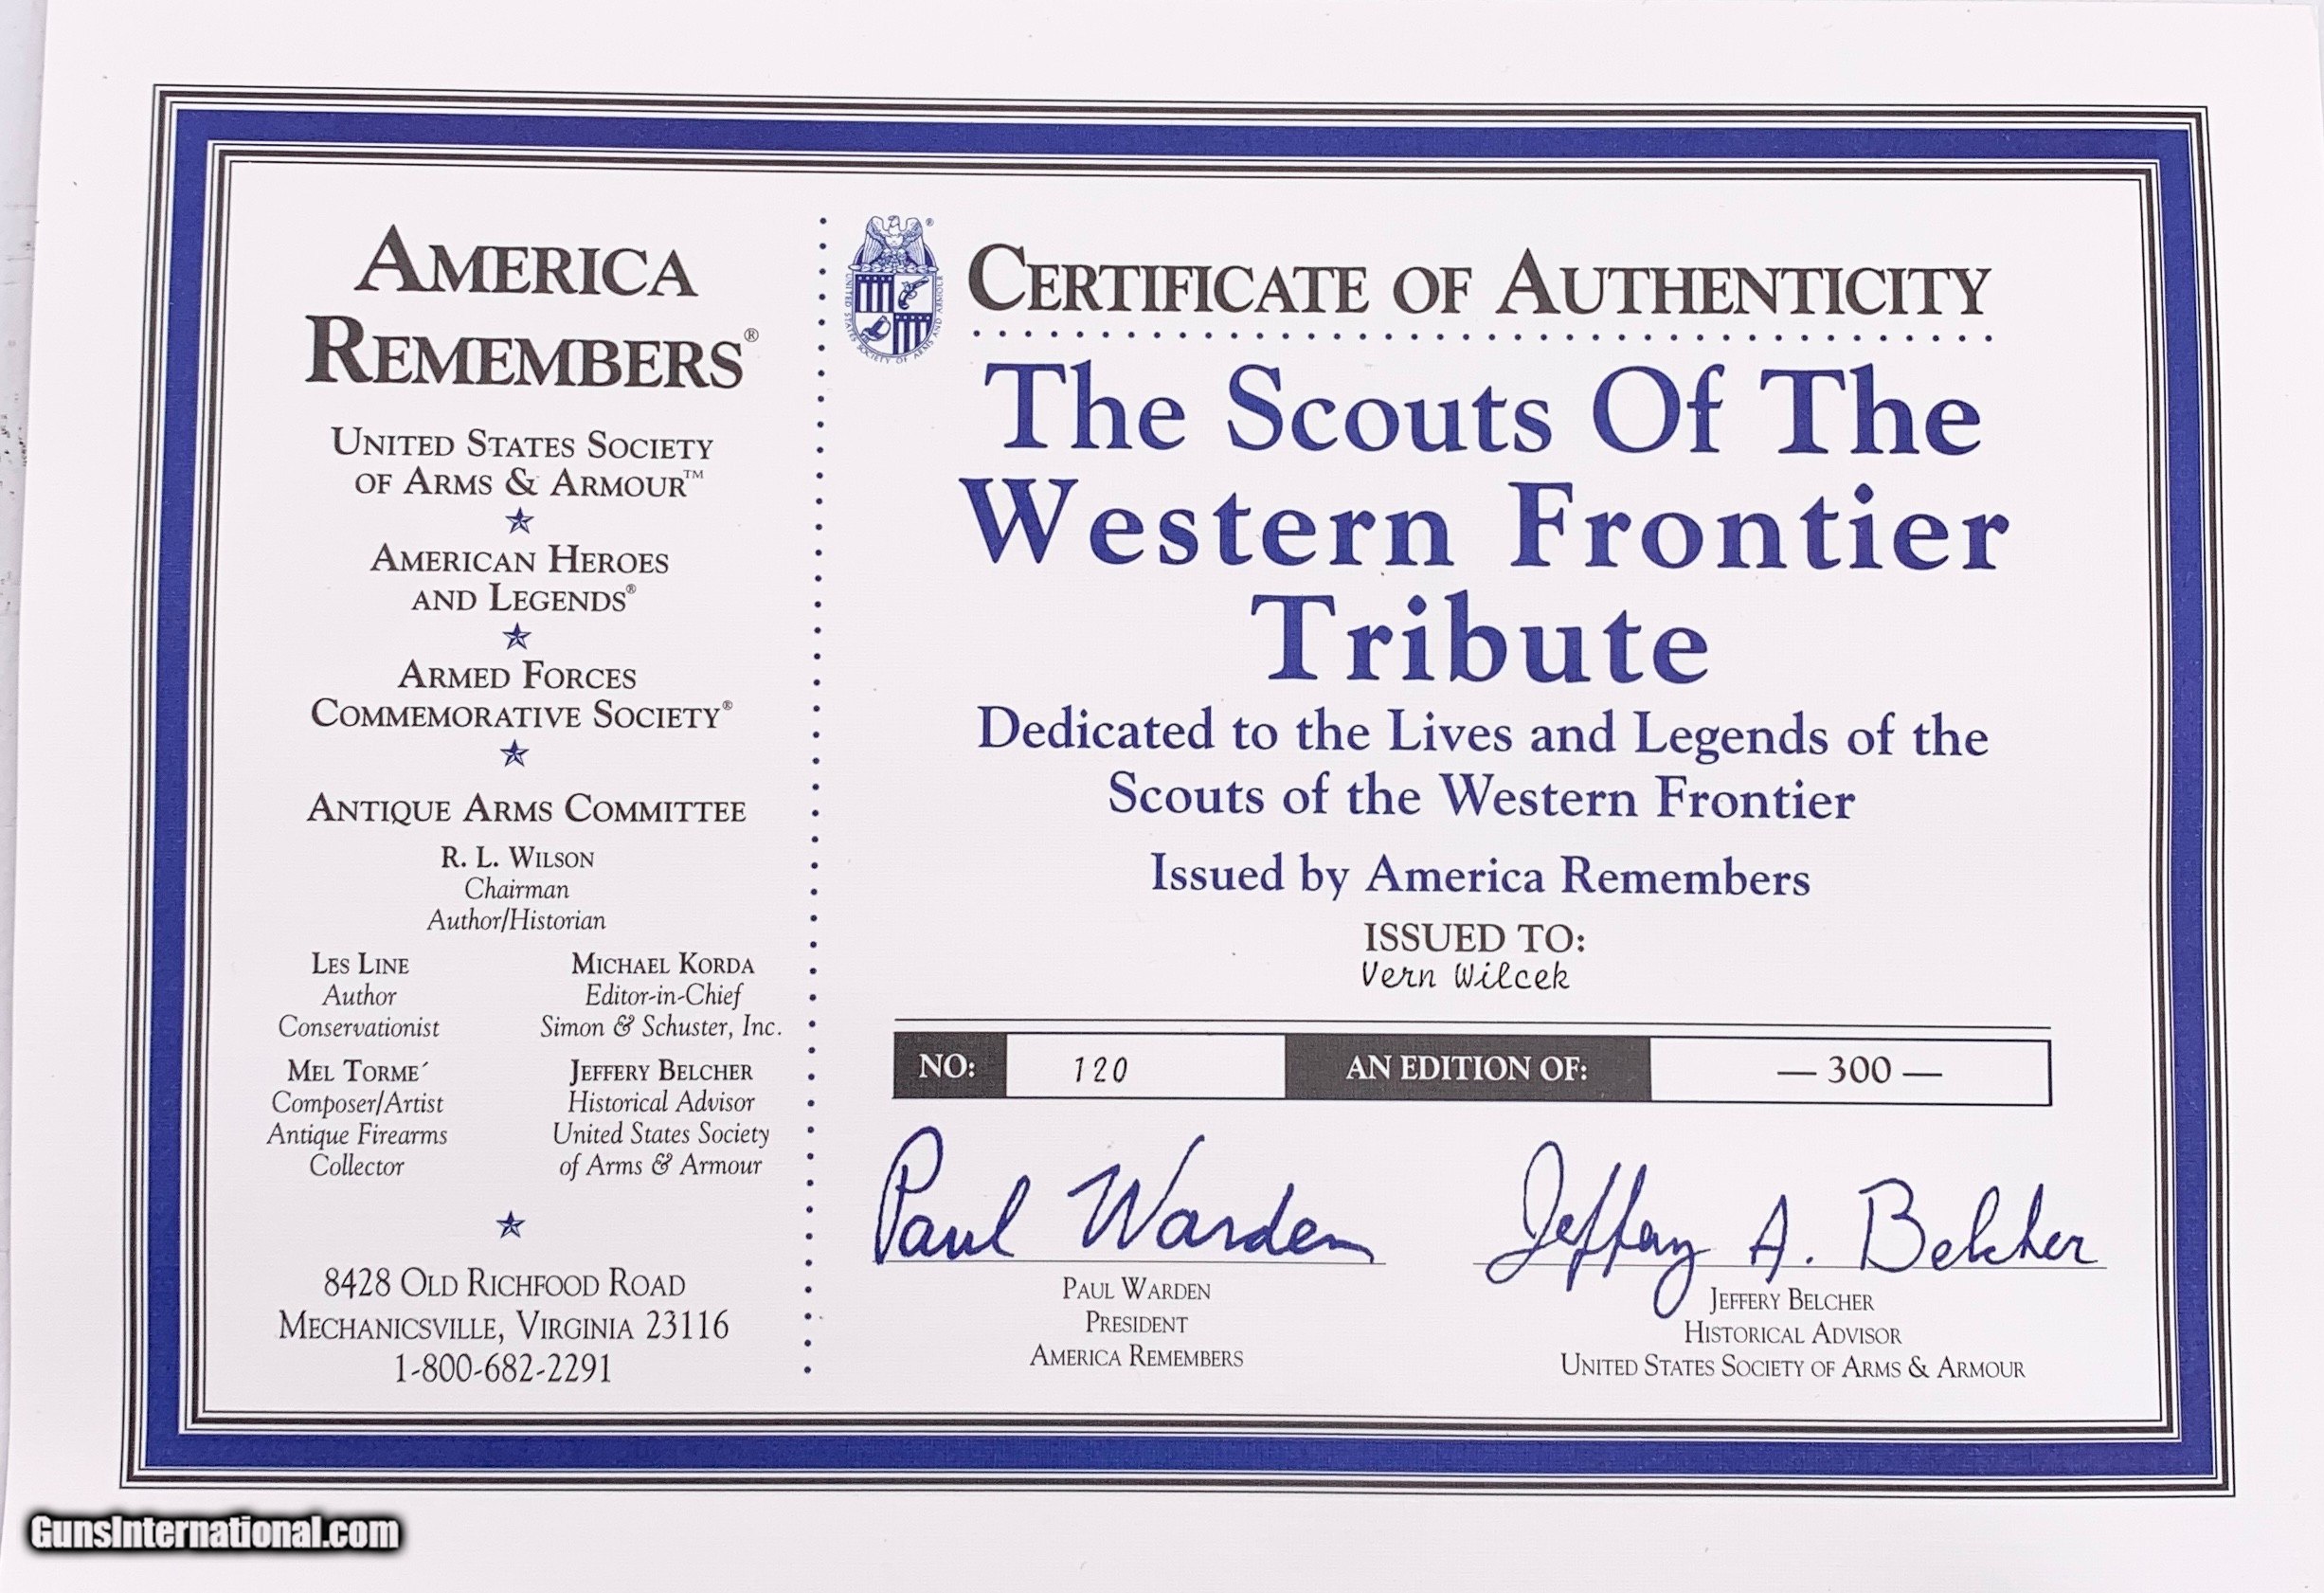 AMERICA
REMEMBERS®
UNITED STATES SOCIETY
OF ARMS & ARMOUR™
AMERICAN HEROES
AND LEGENDS®
ARMED FORCES
COMMEMORATIVE SOCIETY®
ANTIQUE ARMS COMMITTEE
R. L. WILSON
Chairman
Author/Historian
LES LINE
Author
Conservationist
MICHAEL KORDA
Editor-in-Chief
Simon & Schuster, Inc.
MEL TORME´
Composer/Artist
Antique Firearms
Collector
JEFFERY BELCHER
Historical Advisor
United States Society
of Arms & Armour
8428 OLD RICHFOOD ROAD
MECHANICSVILLE, VIRGINIA 23116
1-800-682-2291
UNITED STATES SOCIETY OF ARMS AND ARMOUR
®
CERTIFICATE OF AUTHENTICITY
The Scouts Of The
Western Frontier
Tribute
Dedicated to the Lives and Legends of the
Scouts of the Western Frontier
Issued by America Remembers
ISSUED TO:
Vern Wilcek
NO: 120 AN EDITION OF: — 300 —
Paul Warden
PAUL WARDEN
PRESIDENT
AMERICA REMEMBERS
Jeffery A. Belcher
JEFFERY BELCHER
HISTORICAL ADVISOR
UNITED STATES SOCIETY OF ARMS & ARMOUR
GunsInternational.com